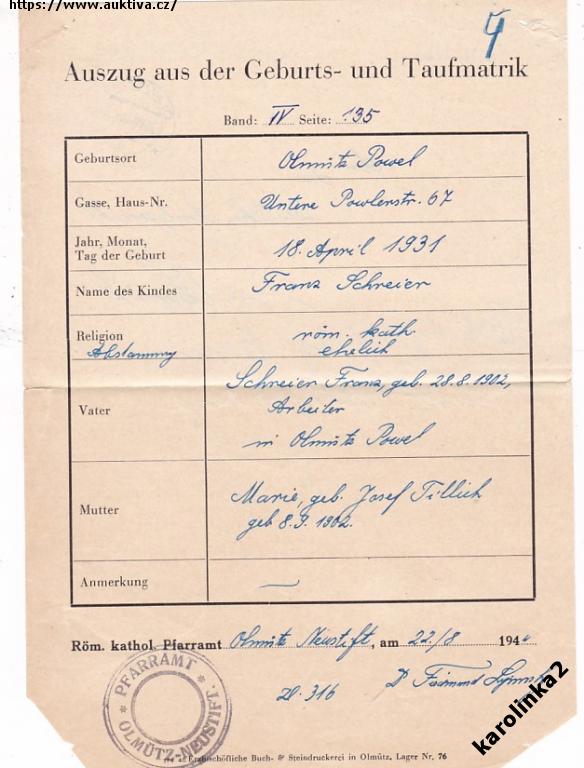 https://www.auktiva.cz/
4
Auszug aus der Geburts- und Taufmatrik
Band: IV Seite: 135
Geburtsort Olmütz Powel
Gasse, Haus-Nr. Untere Powlerstr. 67
Jahr, Monat,
Tag der Geburt 18. April 1931
Name des Kindes Franz Schreier
Religion röm. kath.
Abstammung ehelich
Schreier Franz, geb. 28.8.1902,
Vater Arbeiter
in Olmütz Powel
Mutter Marie, geb. Josef Tillich
geb 8.9.1902.
Anmerkung —
Röm. kathol. Pfarramt Olmütz Neustift, am 22./8 194
Zl. 316
PFARRAMT
OLMÜTZ-NEUSTIFT.
Erzbischöfliche Buch- & Steindruckerei in Olmütz, Lager Nr. 76
karolinka2